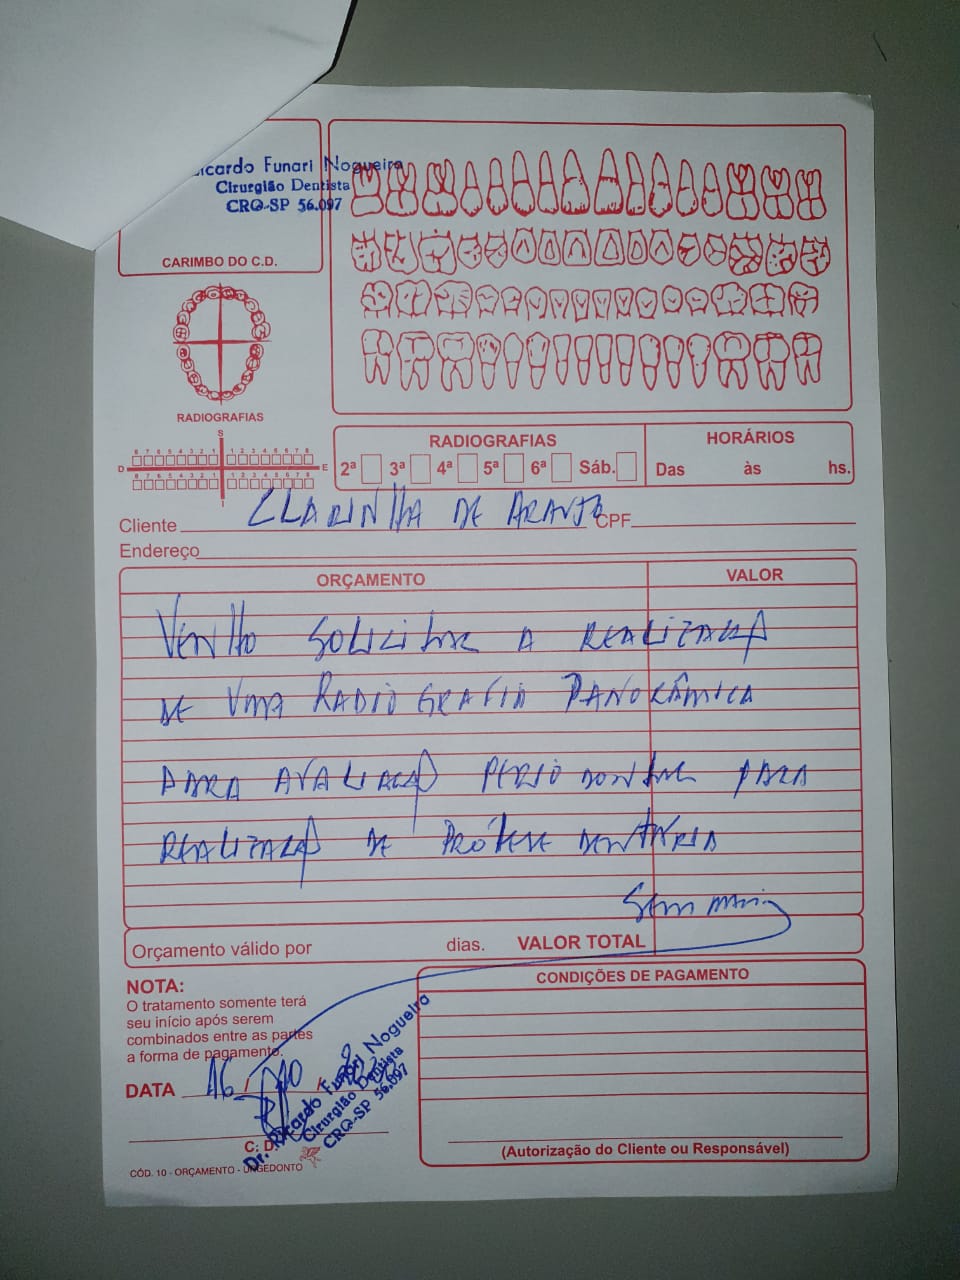 Ricardo Funari Nogueira
Cirurgião Dentista
CRO-SP 56.097
CARIMBO DO C.D.
RADIOGRAFIAS
S
8 7 6 5 4 3 2 1 1 2 3 4 5 6 7 8
D E
8 7 6 5 4 3 2 1 1 2 3 4 5 6 7 8
I
RADIOGRAFIAS
2ª 3ª 4ª 5ª 6ª Sáb.
HORÁRIOS
Das às hs.
Cliente CLARINHA DE ARAUJO CPF
Endereço
ORÇAMENTO VALOR
VENHO SOLICITAR A REALIZAÇÃO
DE UMA RADIOGRAFIA PANORÂMICA
PARA AVALIAÇÃO PERIODONTAL PARA
REALIZAÇÃO DE PRÓTESE DENTÁRIA
Sem mais
Orçamento válido por dias. VALOR TOTAL
NOTA:
O tratamento somente terá
seu início após serem
combinados entre as partes
a forma de pagamento.
DATA 16 / 10 /
C. D.
Dr. Ricardo Funari Nogueira
Cirurgião Dentista
CRO-SP 56.097
CÓD. 10 - ORÇAMENTO - UNGEDONTO
CONDIÇÕES DE PAGAMENTO
(Autorização do Cliente ou Responsável)